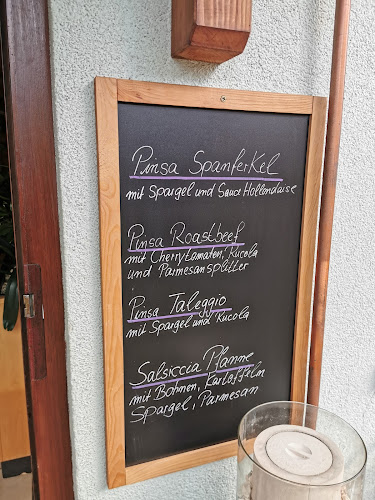 Pinsa Spanferkel
mit Spargel und Sauce Hollandaise
Pinsa Roastbeef
mit Cherrytomaten, Rucola
und Parmesansplitter
Pinsa Taleggio
mit Spargel und Rucola
Salsiccia Pfanne
mit Bohnen, Kartoffeln
Spargel, Parmesan